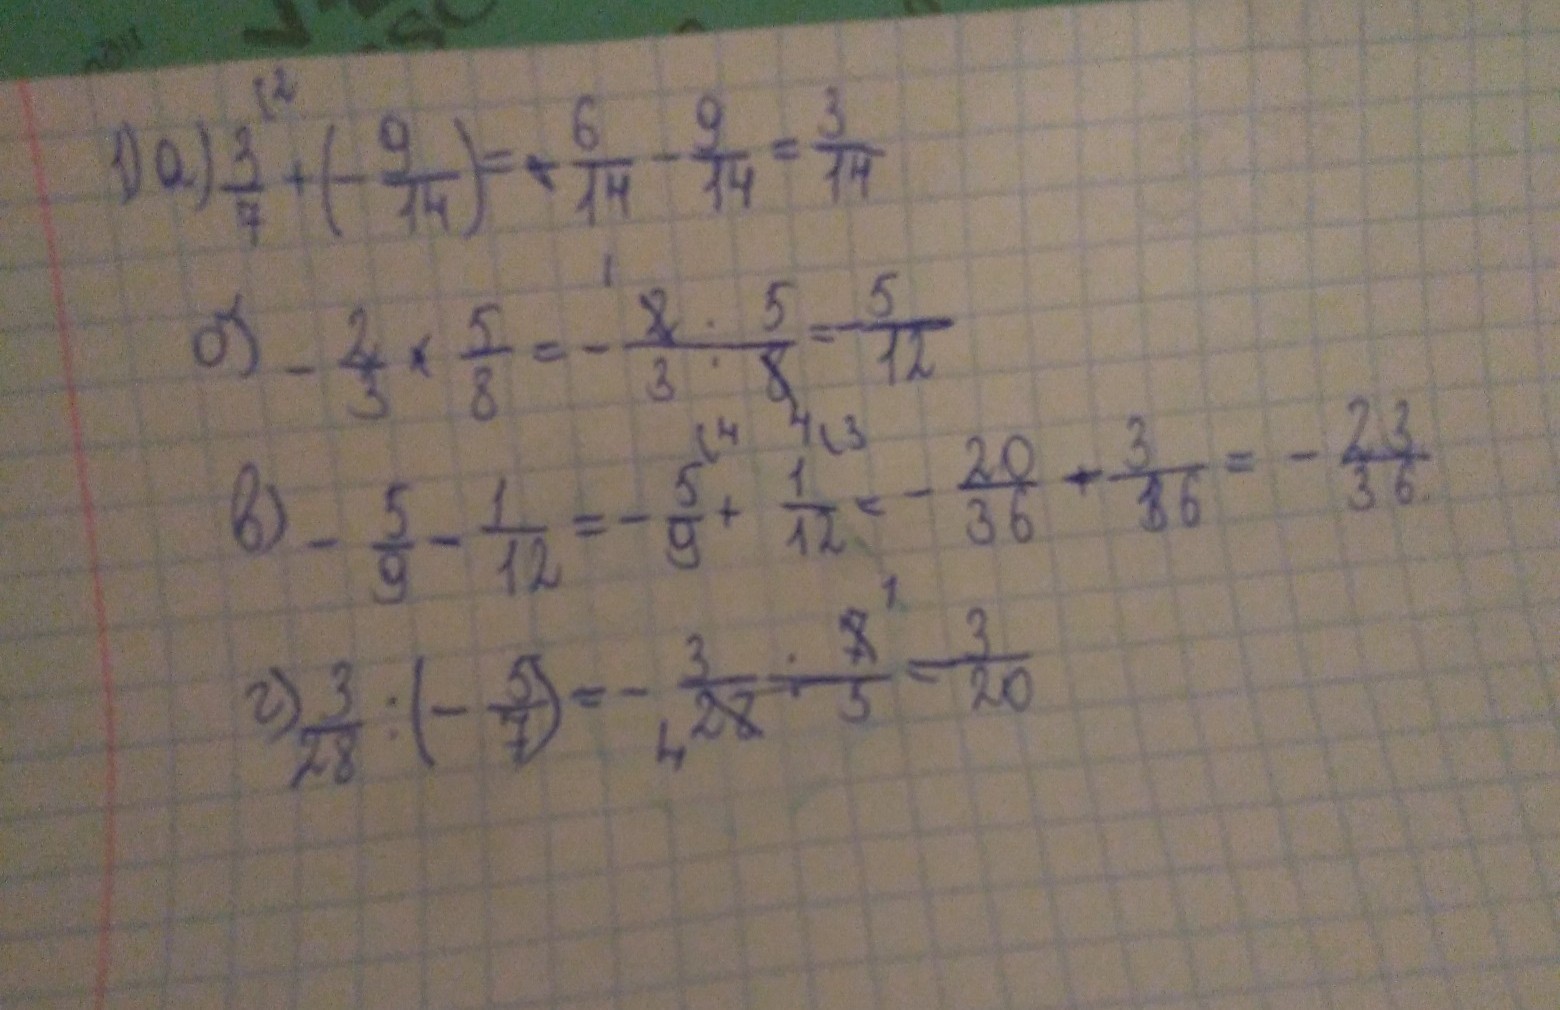 1) а) 3/7 (2 + (- 9/14) = - 6/14 - 9/14 = 3/14
б) - 2/3 × 5/8 = - 2 1 · 5 / 3 · 8 4 = - 5/12
в) - 5/9 - 1/12 = - 5/9 (4 + 1/12 (3 = - 20/36 + 3/36 = - 23/36
г) 3/28 : (- 5/7) = - 3 · 7 1 / 4 28 · 5 = - 3/20